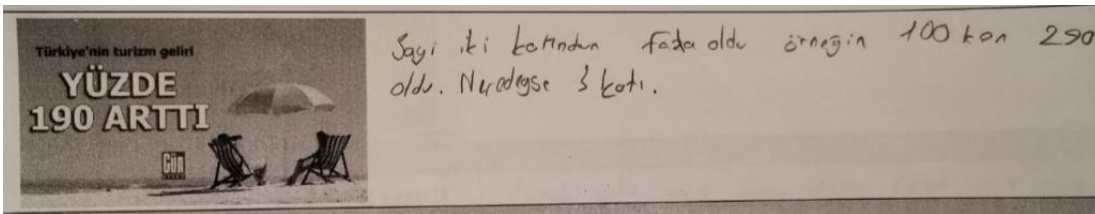 Türkiye'nin turizm geliri
YÜZDE
190 ARTTI
Gün
Sayi iki katından fazla oldu örneğin 100 ken 290
oldu. Neredeyse 3 katı.